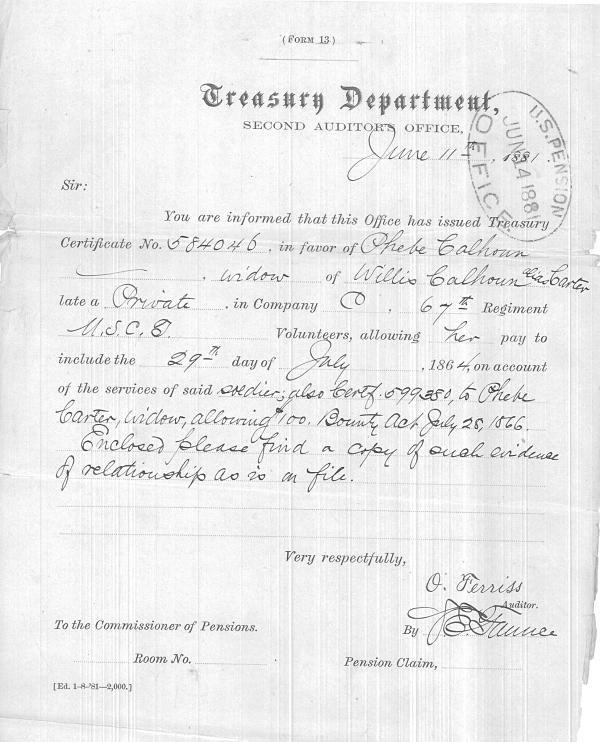 (FORM 13)
Treasury Department,
SECOND AUDITOR'S OFFICE,
June 11th, 1881.
U.S. PENSION
JUN 14 1881
OFFICE
Sir:
You are informed that this Office has issued Treasury
Certificate No. 584046, in favor of Phebe Calhoun
, widow of Willis Calhoun alias Carter
late a Private, in Company C, 67th Regiment
U.S.C.T. Volunteers, allowing her pay to
include the 29th day of July, 1864, on account
of the services of said soldier; also Certf. 599380, to Phebe
Carter, widow, allowing $100. Bounty Act July 28, 1866.
Enclosed please find a copy of such evidence
of relationship as is on file.
Very respectfully,
O. Ferriss
Auditor.
To the Commissioner of Pensions. By
Room No. Pension Claim,
[Ed. 1-8-'81—2,000.]